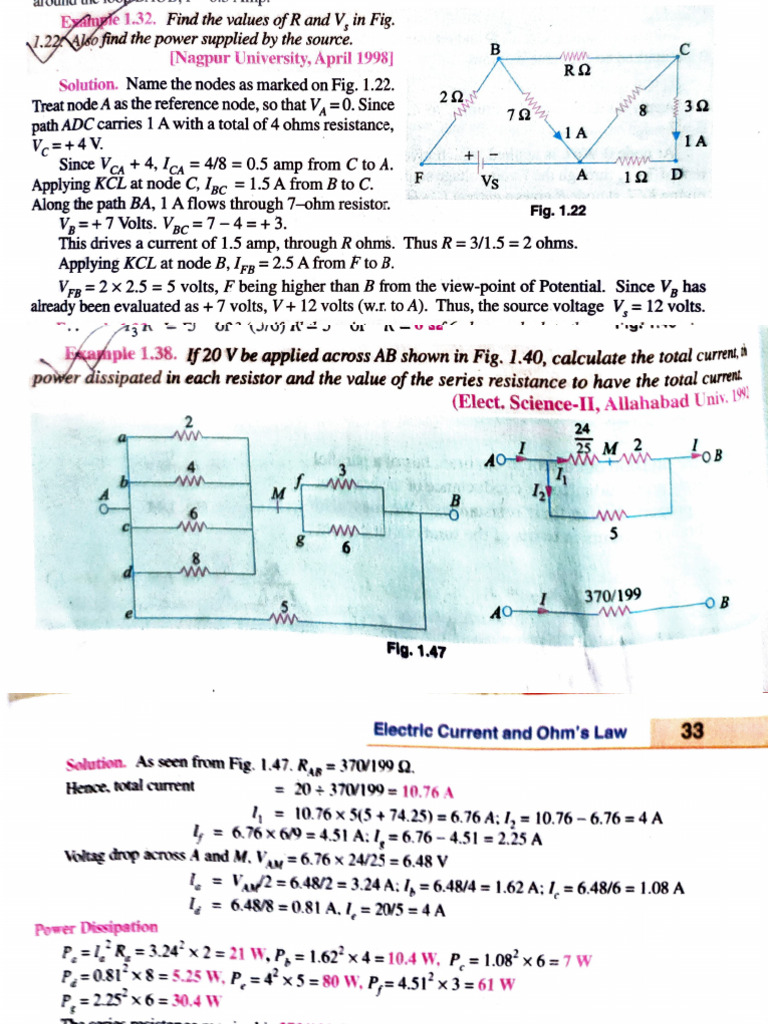 Example 1.32. Find the values of R and Vs in Fig.
1.22. Also find the power supplied by the source.
[Nagpur University, April 1998]
Solution. Name the nodes as marked on Fig. 1.22.
Treat node A as the reference node, so that VA = 0. Since
path ADC carries 1 A with a total of 4 ohms resistance,
VC = + 4 V.
Since VCA + 4, ICA = 4/8 = 0.5 amp from C to A.
Applying KCL at node C, IBC = 1.5 A from B to C.
Along the path BA, 1 A flows through 7–ohm resistor.
VB = + 7 Volts. VBC = 7 – 4 = + 3.
This drives a current of 1.5 amp, through R ohms. Thus R = 3/1.5 = 2 ohms.
Applying KCL at node B, IFB = 2.5 A from F to B.
VFB = 2 × 2.5 = 5 volts, F being higher than B from the view-point of Potential. Since VB has
already been evaluated as + 7 volts, V + 12 volts (w.r. to A). Thus, the source voltage Vs = 12 volts.
B
C
R Ω
2 Ω
7 Ω
8
3 Ω
1 A
1 A
+ –
F
VS
A
1 Ω
D
Fig. 1.22
Example 1.38. If 20 V be applied across AB shown in Fig. 1.40, calculate the total current,
power dissipated in each resistor and the value of the series resistance to have the total current.
(Elect. Science-II, Allahabad Univ.
a
2
b
4
A
c
6
d
8
e
5
M
f
3
g
6
B
A
I
24
25
M
2
I
B
I1
I2
5
A
I
370/199
B
Fig. 1.47
Electric Current and Ohm's Law
33
Solution. As seen from Fig. 1.47. RAB = 370/199 Ω.
Hence, total current = 20 ÷ 370/199 = 10.76 A
I1 = 10.76 × 5(5 + 74.25) = 6.76 A; I2 = 10.76 – 6.76 = 4 A
If = 6.76 × 6/9 = 4.51 A; Ig = 6.76 – 4.51 = 2.25 A
Voltag drop across A and M, VAM = 6.76 × 24/25 = 6.48 V
Ia = VAM/2 = 6.48/2 = 3.24 A; Ib = 6.48/4 = 1.62 A; Ic = 6.48/6 = 1.08 A
Id = 6.48/8 = 0.81 A, Ie = 20/5 = 4 A
Power Dissipation
Pa = Ia² Ra = 3.24² × 2 = 21 W, Pb = 1.62² × 4 = 10.4 W, Pc = 1.08² × 6 = 7 W
Pd = 0.81² × 8 = 5.25 W, Pe = 4² × 5 = 80 W, Pf = 4.51² × 3 = 61 W
Pg = 2.25² × 6 = 30.4 W